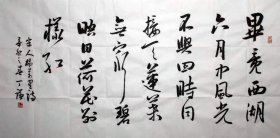 畢竟西湖
六月中風光
不與四時同
接天蓮葉
無窮碧
映日荷花別
樣紅
宋人楊萬里詩